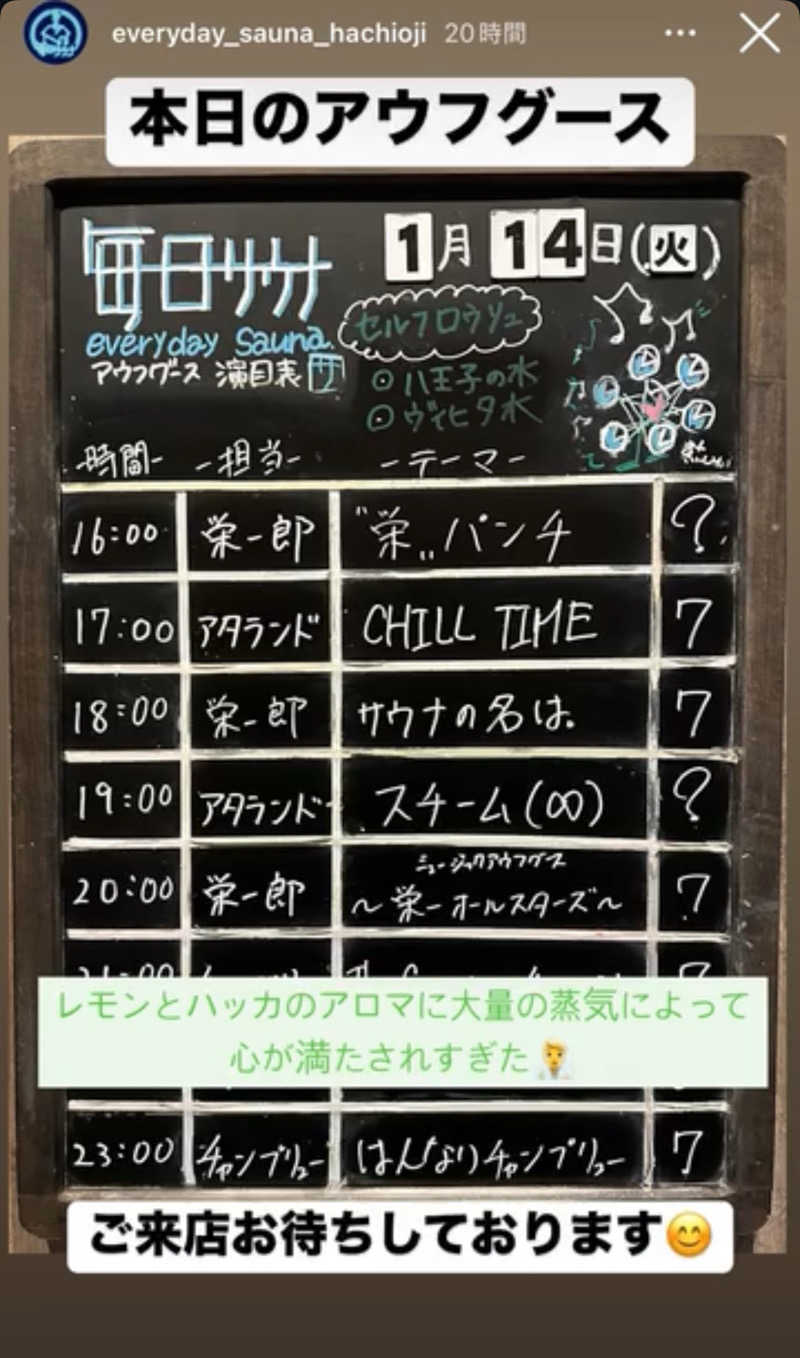 everyday_sauna_hachioji 20時間
本日のアウフグース
毎日サウナ
1月14日(火)
everyday Sauna.
セルフロウリュ
アウフグース 演目表
八王子の水
ヴィヒタ水
-時間- -担当- -テーマ-
16:00 栄一郎 "栄„パンチ ?
17:00 アタランド CHILL TIME 7
18:00 栄一郎 サウナの名は。 7
19:00 アタランド スチーム(∞) ?
ミュージックアウフグース
20:00 栄一郎 〜栄一オールスターズ〜 7
21:00
レモンとハッカのアロマに大量の蒸気によって
心が満たされすぎた
23:00 チャンプリュー はんなりチャンプリュー 7
ご来店お待ちしております😊